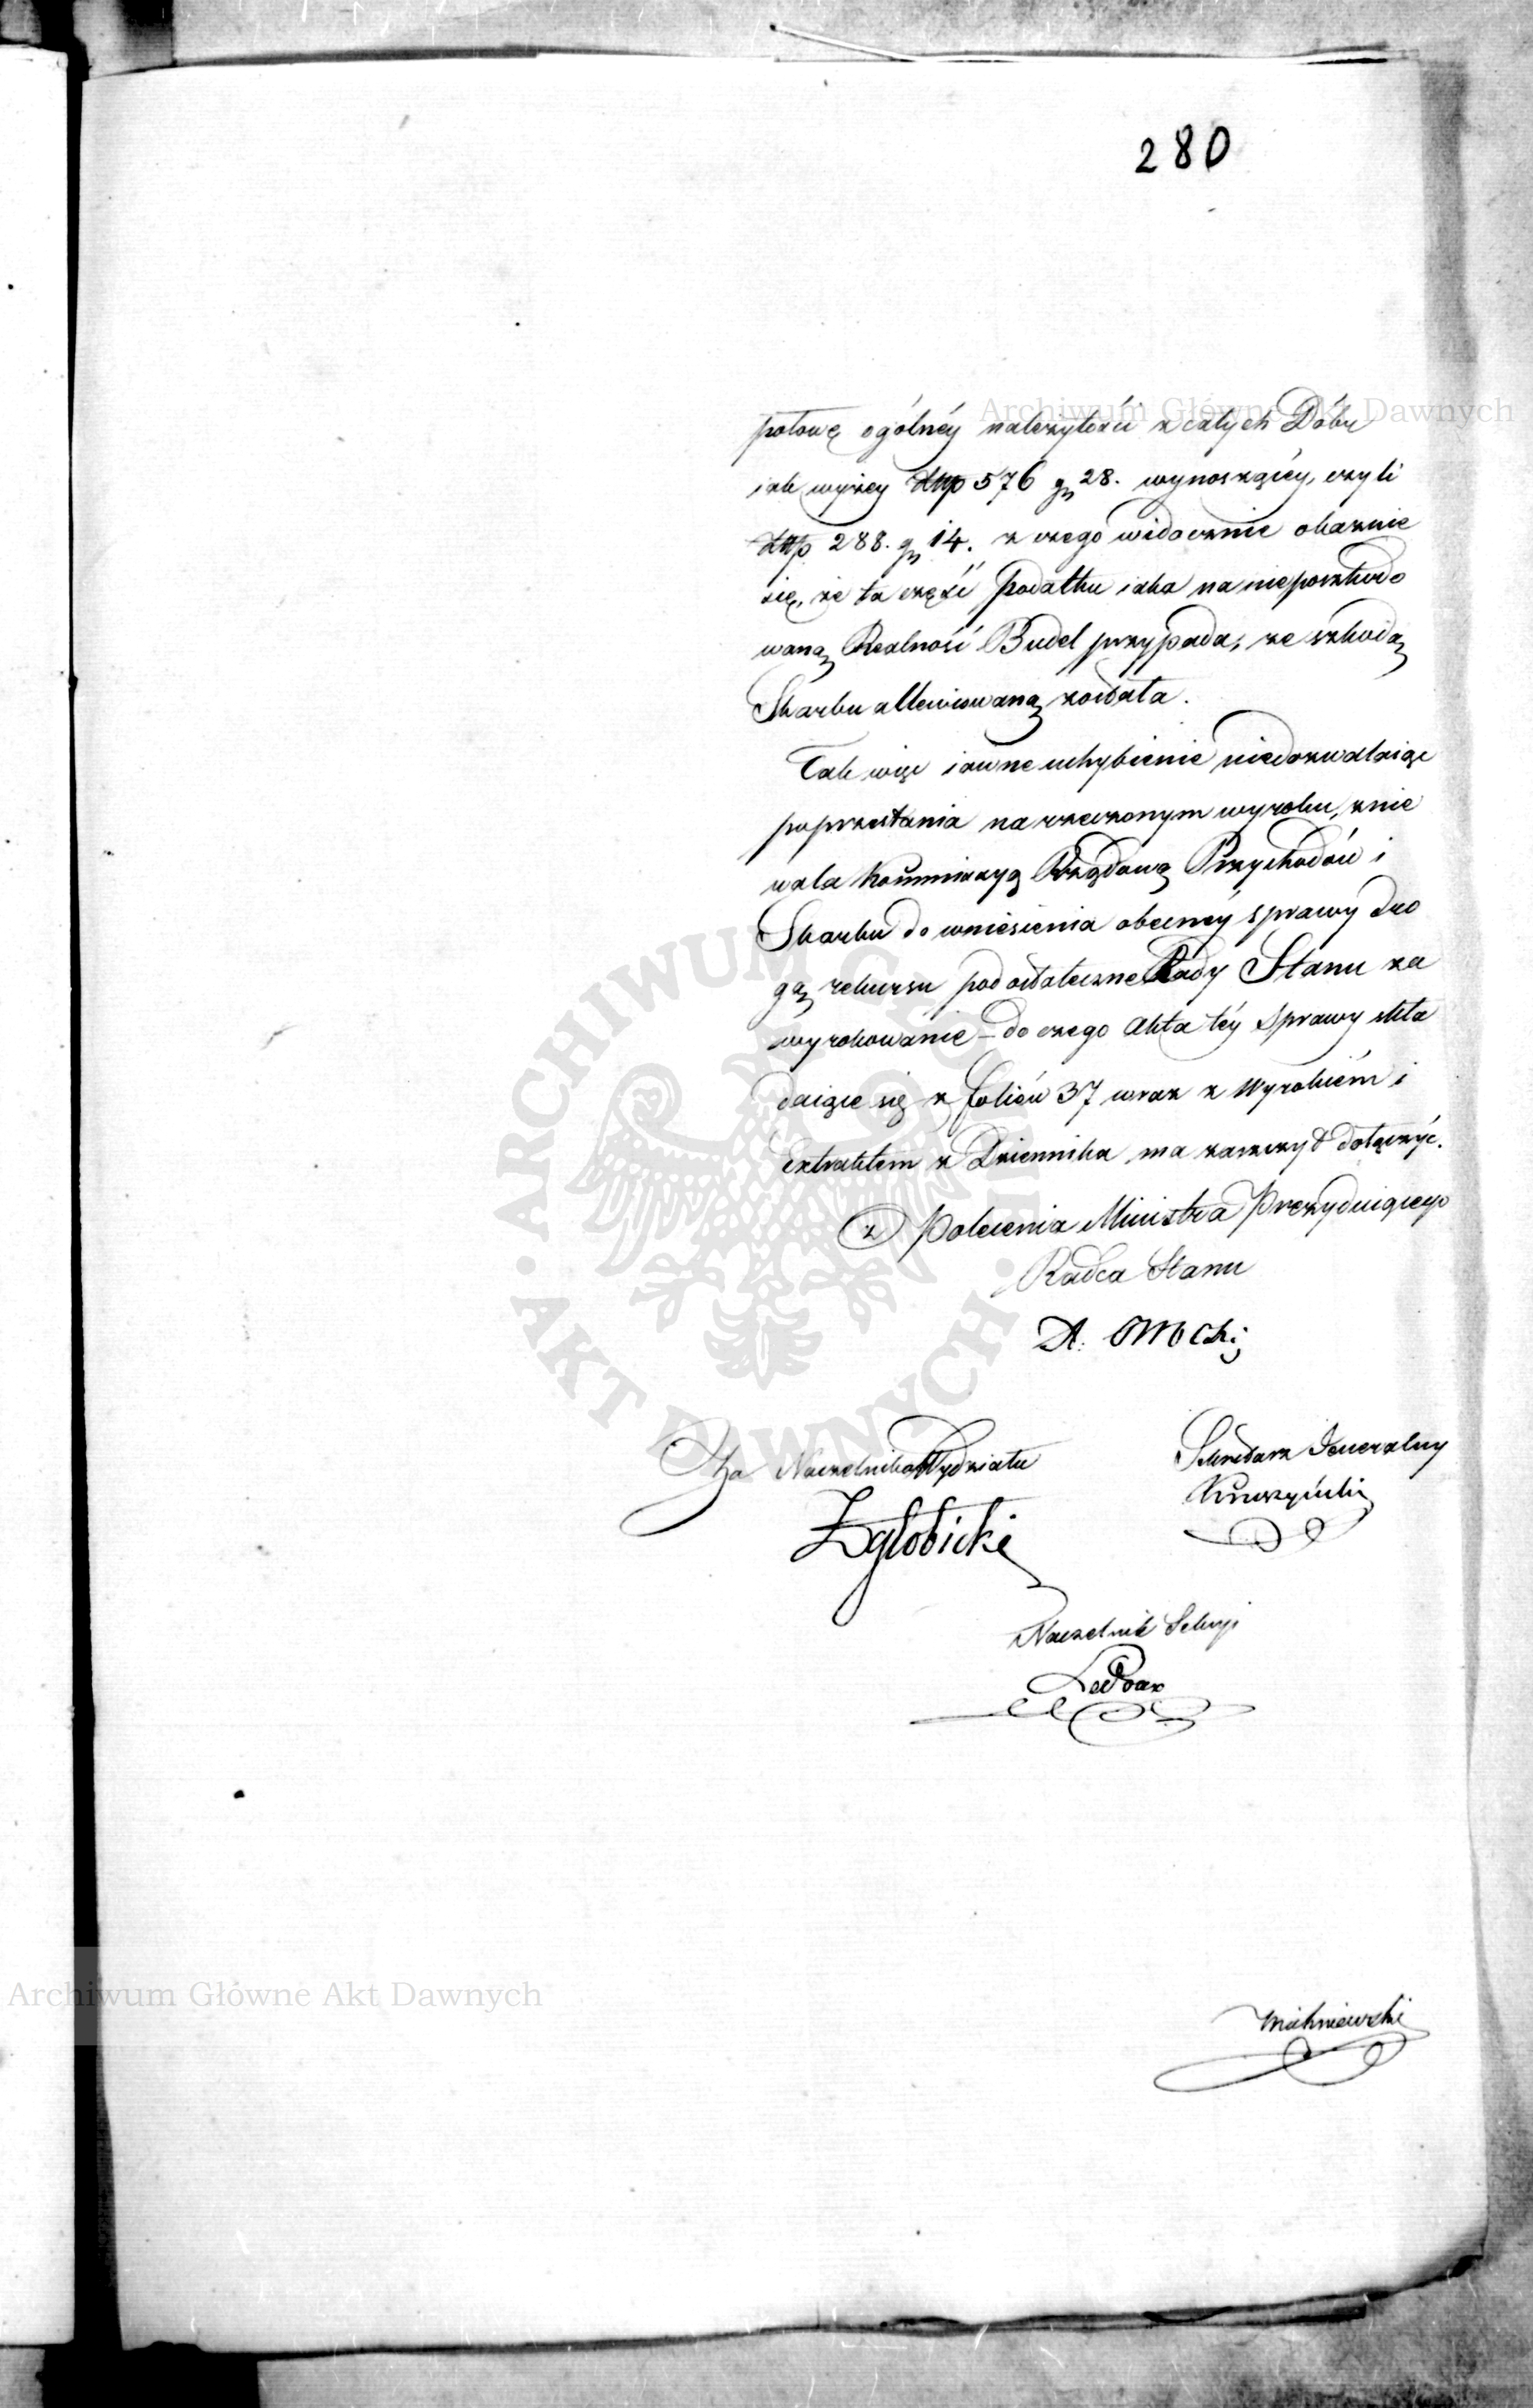 280
Archiwum Główne Akt Dawnych
połowę ogólnéy należytości z całych Dóbr
iak wyżey Złtp 576 gr 28. wynoszącéy, czyli
Złtp 288. gr 14. z czego widocznie okaznie
się, że ta część Podatku iaka na nieposzkodo
waną Realność Budel przypada, ze szkodą
Skarbu allewiowaną została.
Tak więc iawne uchybienie niedozwalaiąc
poprzestania na rzeczonym wyroku, znie
wala Kommissyą Rządową Przychodów i
Skarbu do wniesienia obecnéy sprawy dro
gą rekursu pod ostateczne Rady Stanu za
wyrokowanie – do czego Akta téy Sprawy skła
daiące się z foliów 37 wraz z Wyrokiém i
Extraktem z Dziennika ma zaszczyt dołączyć.
z Polecenia Ministra Prezyduiącego
Radca Stanu
Za Naczelnika Wydziału
Sekretarz Jeneralny
Zgłobicki
Naczelnik Sekcyi
Archiwum Główne Akt Dawnych
Michniewski
ARCHIWUM GŁÓWNE · AKT DAWNYCH ·